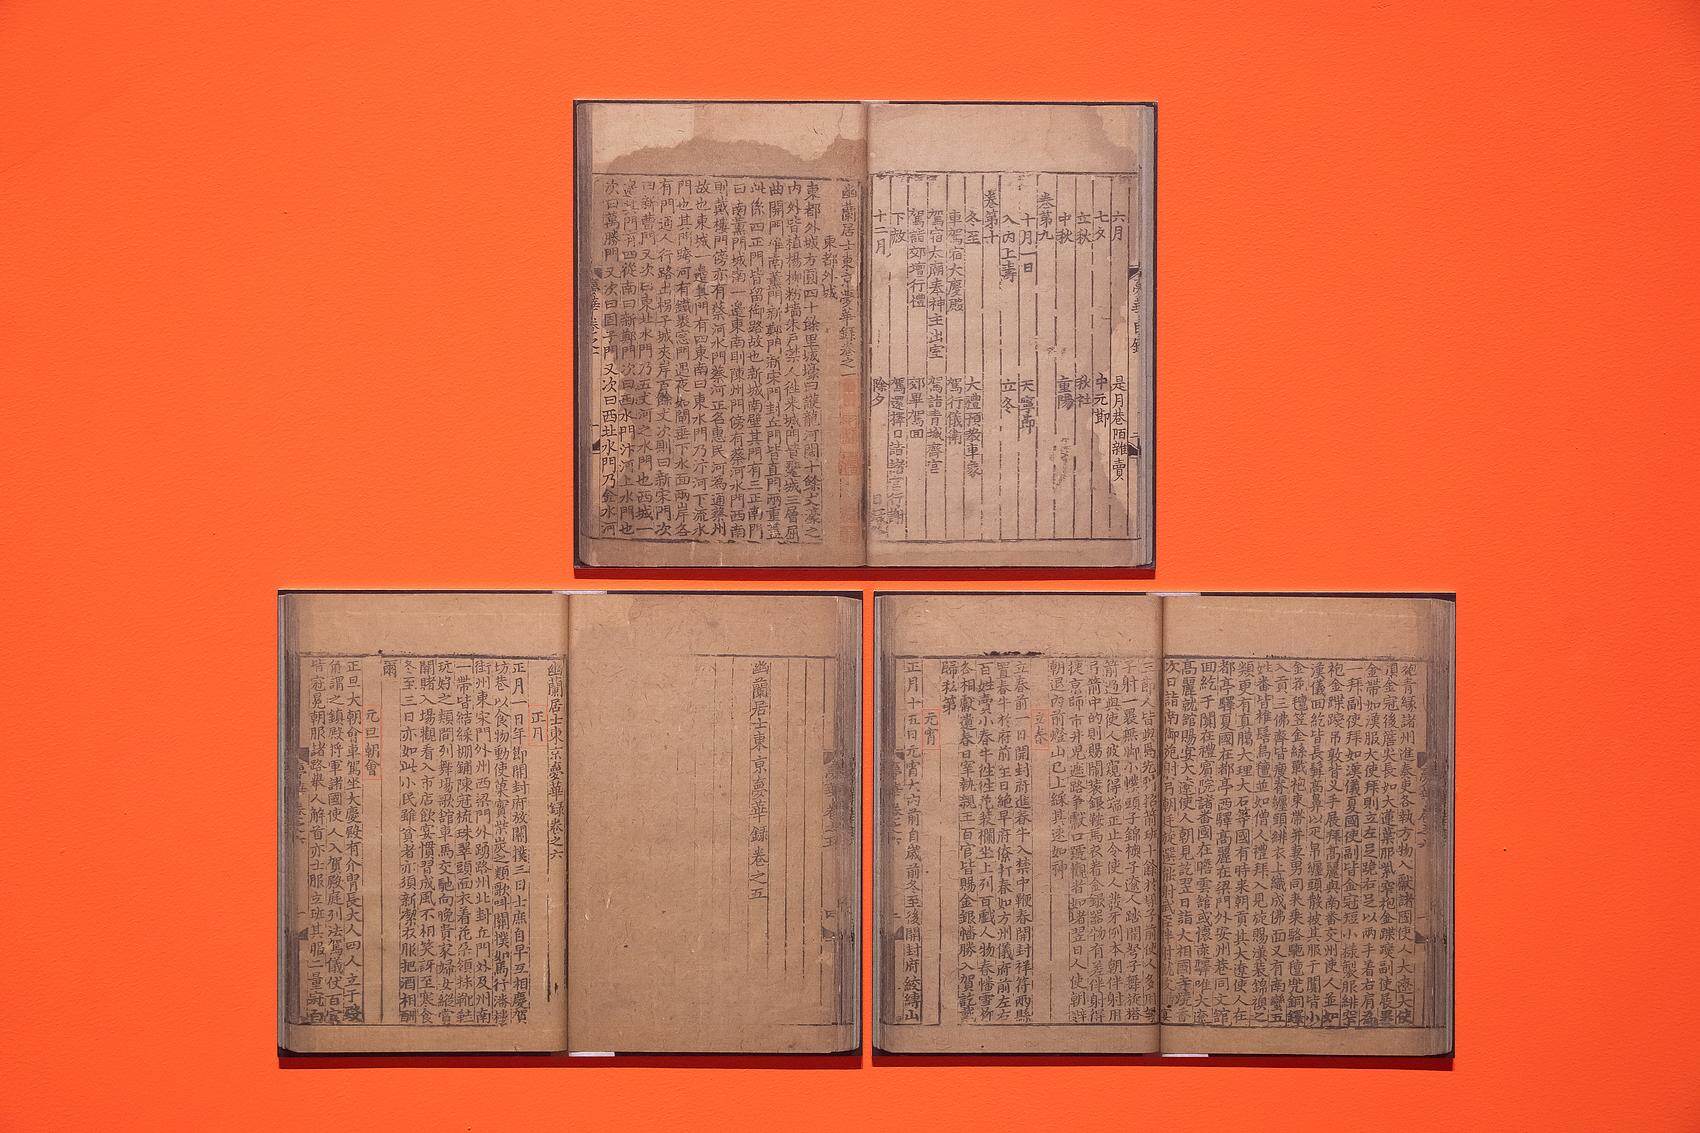 六月 是月巷陌雜賣
七夕 中元節
立秋 秋社
中秋 重陽
卷第九
十月一日 天寧節
入內上壽 立冬
卷第十
冬至 大禮預教車象
車駕宿大慶殿 駕行儀衛
駕宿太廟奉神主出室 駕詣青城齋宮
駕詣郊壇行禮 郊畢駕回
下赦 駕還擇日詣諸宮行謝
十二月 除夕
幽蘭居士東京夢華錄卷之一
東都外城
東都外城方圓四十餘里城壕曰護龍河闊十餘丈濠之
內外皆植楊柳粉墻朱戶禁人往來城門皆甕城三層屈
曲開門唯南薰門新鄭門新宋門封丘門皆直門兩重蓋
此係四正門皆留御路故也新城南壁其門有三正南門
曰南薰門城南一邊東南則陳州門傍有蔡河水門西南
則戴樓門傍亦有蔡河水門蔡河正名惠民河為通蔡州
故也東城一邊其門有四東南曰東水門乃汴河下流水
門也其門跨河有鐵裹窓門遇夜如閘垂下水面兩岸各
有門通人行路出拐子城夾岸百餘丈次則曰新宋門次
曰新曹門又次曰東北水門乃五丈河之水門也西城一
邊其門有四從南曰新鄭門次曰西水門汴河上水門也
次曰萬勝門又次曰固子門又次曰西北水門乃金水河
幽蘭居士東京夢華錄卷之五
幽蘭居士東京夢華錄卷之六
正月
正月一日年節開封府放關撲三日士庶自早互相慶賀
坊巷以食物動使菓實柴炭之類歌叫關撲如馬行潘樓
街州東宋門外州西梁門外踴路州北封丘門外及州南
一帶皆結綵棚鋪陳冠梳珠翠頭面衣着花朵領抹靴鞋
玩好之類間列舞場歌館車馬交馳向晚貴家婦女縱賞
關賭入場觀看入市店飲宴慣習成風不相笑訝至寒食
冬至三日亦如此小民雖貧者亦須新潔衣服把酒相酬
爾
元旦朝會
正旦大朝會車駕坐大慶殿有介冑長大人四人立于殿
角謂之鎮殿將軍諸國使人入賀殿庭列法駕儀仗百官
皆冠冕朝服諸路舉人解首亦士服立班其服二量冠白
袍青緣諸州進奏吏各執方物入獻諸國使人大遼大使
頂金冠後簷尖長如大蓮葉服紫窄袍金蹀躞副使展裹
金帶如漢服大使拜則立左足跪右足以兩手着右肩為
一拜副使拜如漢儀夏國使副皆金冠短小樣製服緋窄
袍金蹀躞吊敦皆叉手展拜高麗與南番交州使人並如
漢儀回紇皆長髯高鼻以疋帛纏頭散披其服于闐皆小
金花氊笠金絲戰袍束帶并妻男同來乘駱駝氊兜銅鐸
入貢三佛齊皆瘦脊纏頭緋衣上織成佛面又有南蠻五
姓番皆椎髻烏氊並如僧人禮拜入見旋賜漢裝錦襖之
類更有真臘大理大石等國有時來朝貢其大遼使人在
都亭驛夏國在都亭西驛高麗在梁門外安州巷同文館
回紇于闐在禮賓院諸番國在瞻雲館或懷遠驛唯大遼
高麗就館賜宴大遼使人朝見訖翌日詣大相國寺燒香
次日詣南御苑射弓朝廷旋選能射武臣伴射就彼賜宴
三節人皆與焉先列招箭班十餘於垜子前使人多用弩
子射一裹無脚小幞頭子錦襖子遼人踏開弩子舞旋搭
箭過與使人彼窺得端正止令使人發牙例本朝伴射用
弓箭中的則賜鬧裝銀鞍馬衣着金銀器物有差伴射得
捷京師市井兒遮路爭獻口號觀者如堵翌日人使朝辭
朝退內前燈山已上綵其速如神
立春
立春前一日開封府進春牛入禁中鞭春開封祥符兩縣
置春牛於府前至日絕早府僚打春如方州儀府前左右
百姓賣小春牛往往花裝欄坐上列百戲人物春幡雪柳
各相獻遺春日宰執親王百官皆賜金銀幡勝入賀訖戴
歸私第
元宵
正月十五日元宵大內前自歲前冬至後開封府絞縛山